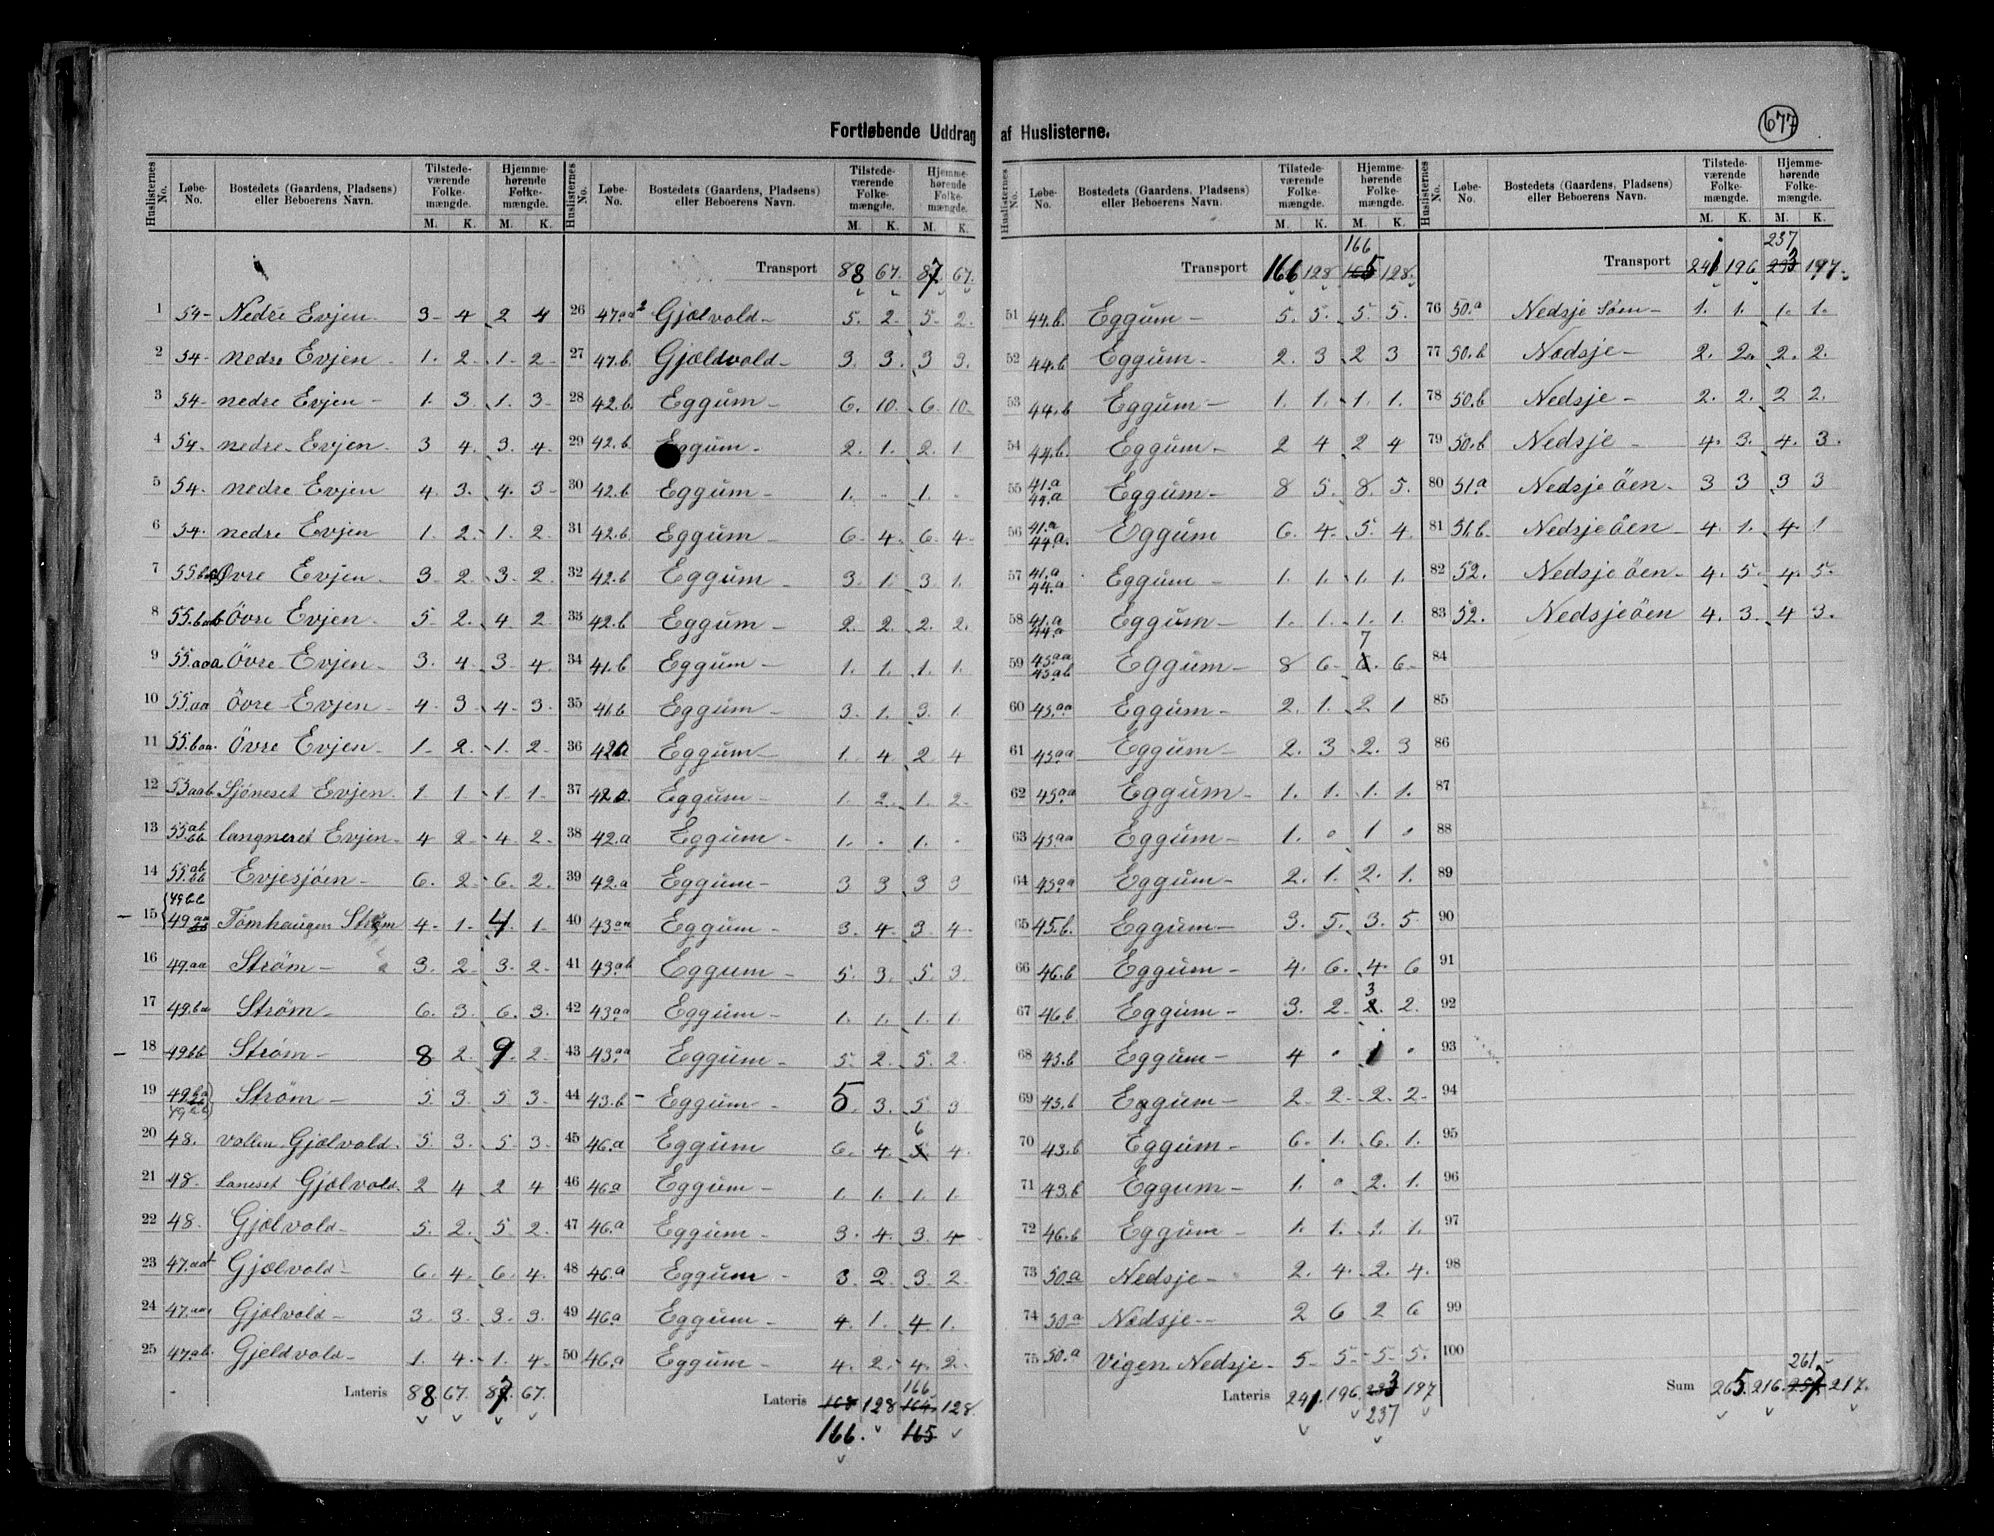 677
Fortløbende Uddrag af Huslisterne.
Huslisternes No. | Løbe-No. | Bostedets (Gaardens, Pladsens) eller Beboerens Navn. | Tilstedeværende Folkemængde. M. K. | Hjemmehørende Folkemængde. M. K.
1 54- Nedre Evjen- 3- 4- 2 4
2 54- nedre Evjen- 1. 2- 1- 2-
3 54- nedre Evjen- 1. 3- 1. 3-
4 54. nedre- Evjen. 3 4. 3. 4.
5 54. nedre Evjen 4. 3. 4. 3-
6 54. nedre Evjen 1. 2. 1. 2.
7 55.ba Øvre Evjen- 3- 2- 3- 2.
8 55.bab Övre Evjen- 5 2. 4. 2
9 55.aaa Övre Evjen- 3. 4- 3- 4.
10 55.aa Övre-Evjen- 4. 3- 4- 3.
11 55.baa. Övre Evjen- 1- 2- 1- 2-
12 53aab Sjöneset Evjen. 1. 1. 1. 1.
13 55ab bb langneset Evjen- 4 2- 4. 2
14 55.ab bb Evjesjöen- 6. 2- 6. 2.
15 49bb 49aa Tömhaugen Ström 4- 1. 4. 1.
16 49aa Ström- 3. 2- 3. 2-
17 49.ba Ström- 6. 3. 6. 3.
18 49bb Ström- 8 2. 9. 2-
19 49ba 49bb Ström- 5 3. 5 3-
20 48. valen-Gjælvold. 5 3. 5 3-
21 48. Laneset Gjælvold. 2 4 2 4
22 48. Gjælvold- 5. 2. 5 2.
23 47.aa1 Gjælvold- 6. 4. 6. 4.
24 47.aa Gjælvold- 3 3. 3. 3.
25 47.ab. Gjeldvold- 1. 4. 1. 4-
Lateris 88 67. 87. 67.
Transport 88 67. 87 67.
26 47.aa2 Gjælvold- 5. 2. 5- 2.
27 47.b. Gjældvold- 3. 3. 3 3.
28 42.b. Eggum- 6. 10. 6. 10.
29 42.b Eggum- 2. 1. 2. 1
30 42.b Eggum- 1. - 1. -
31 42.b Eggum- 6. 4. 6. 4-
32 42.b Eggum- 3. 1. 3. 1.
33 42.b Eggum- 2. 2. 2. 2.
34 41.b Eggum- 1. 1. 1. 1.
35 41.b Eggum- 3. 1. 3. 1
36 42a Eggum- 1. 4 2 4
37 42a Eggum- 1. 2. 1. 2.
38 42.a Eggum- 1. - 1. -
39 42.a Eggum- 3 3 3 3
40 43aa Eggum- 3. 4. 3 4-
41 43ab Eggum- 5. 3. 5 3.
42 43aa Eggum- 1. 1. 1. 1.
43 43.aa Eggum- 5. 2. 5. 2.
44 43.b- Eggum- 5 3. 5. 3
45 46.a Eggum 6. 4. 5 6 4.
46 46a Eggum- 1. 1. 1. 1.
47 46.a Eggum- 3. 4. 3. 4-
48 46.a Eggum- 3. 2. 3. 2.
49 46.a Eggum- 4. 1. 4. 1.
50 46.a Eggum- 4. 2. 4. 2-
Lateris 168 128 164. 166 128.
166. 165
Huslisternes No. | Løbe-No. | Bostedets (Gaardens, Pladsens) eller Beboerens Navn. | Tilstedeværende Folkemængde. M. K. | Hjemmehørende Folkemængde. M. K.
166
Transport 166 128 165 128.
51 44.b. Eggum- 5. 5. 5 5.
52 44.b Eggum- 2. 3 2 3
53 44.b Eggum- 1. 1. 1. 1.
54 44.b. Eggum- 2 4 2 4
55 41.a 44.a Eggum- 8 5. 8. 5.
56 41.a 44.a. Eggum 6. 4. 5. 4
57 41.a 44.a Eggum- 1. 1. 1. 1.
58 41.a 44.a Eggum- 1. 1. 1. 1.
59 45aa 45ab Eggum- 8 6. 6. 7 6-
60 45.aa Eggum- 2. 1. 2 1
61 45aa Eggum- 2. 3 2. 3
62 45aa Eggum- 1. 1. 1. 1.
63 45aa Eggum- 1. 0 1 0
64 45aa Eggum- 2. 1. 2. 1.
65 45.b. Eggum- 3. 5. 3. 5
66 46.b Eggum- 4. 6. 4. 6
67 46.b Eggum- 3. 2. 2. 3 2.
68 45.b Eggum- 4 0 1 0
69 45.b Eggum- 2. 2. 2. 2.
70 43.b Eggum- 6. 1. 6. 1.
71 43.b Eggum- 1. 0 2. 1.
72 46.b Eggum- 1. 1. 1. 1.
73 50.a Nedsje- 2. 4. 2. 4.
74 50.a Nedsje-- 2 6 2 6
75 50.a Vigen Nedsje- 5- 5- 5- 5.
Lateris 241. 196 233 197
237
237
Transport 241 196 233 197.
76 50.a Nedsje Søm- 1. 1. 1. 1.
77 50.b Nedsje- 2. 2. 2. 2.
78 50.b Nedsje- 2. 2. 2 2.
79 50.b Nedsje- 4. 3. 4. 3.
80 51.a Nedsje öen- 3 3 3 3
81 51.b Nedsjeöen 4. 1. 4. 1
82 52. Nedsje öen- 4. 5. 4. 5.
83 52. Nedsjeöen 4. 3. 4 3.
84
85
86
87
88
89
90
91
92
93
94
95
96
97
98
99
100
261-
Sum 265. 216. 257. 217.